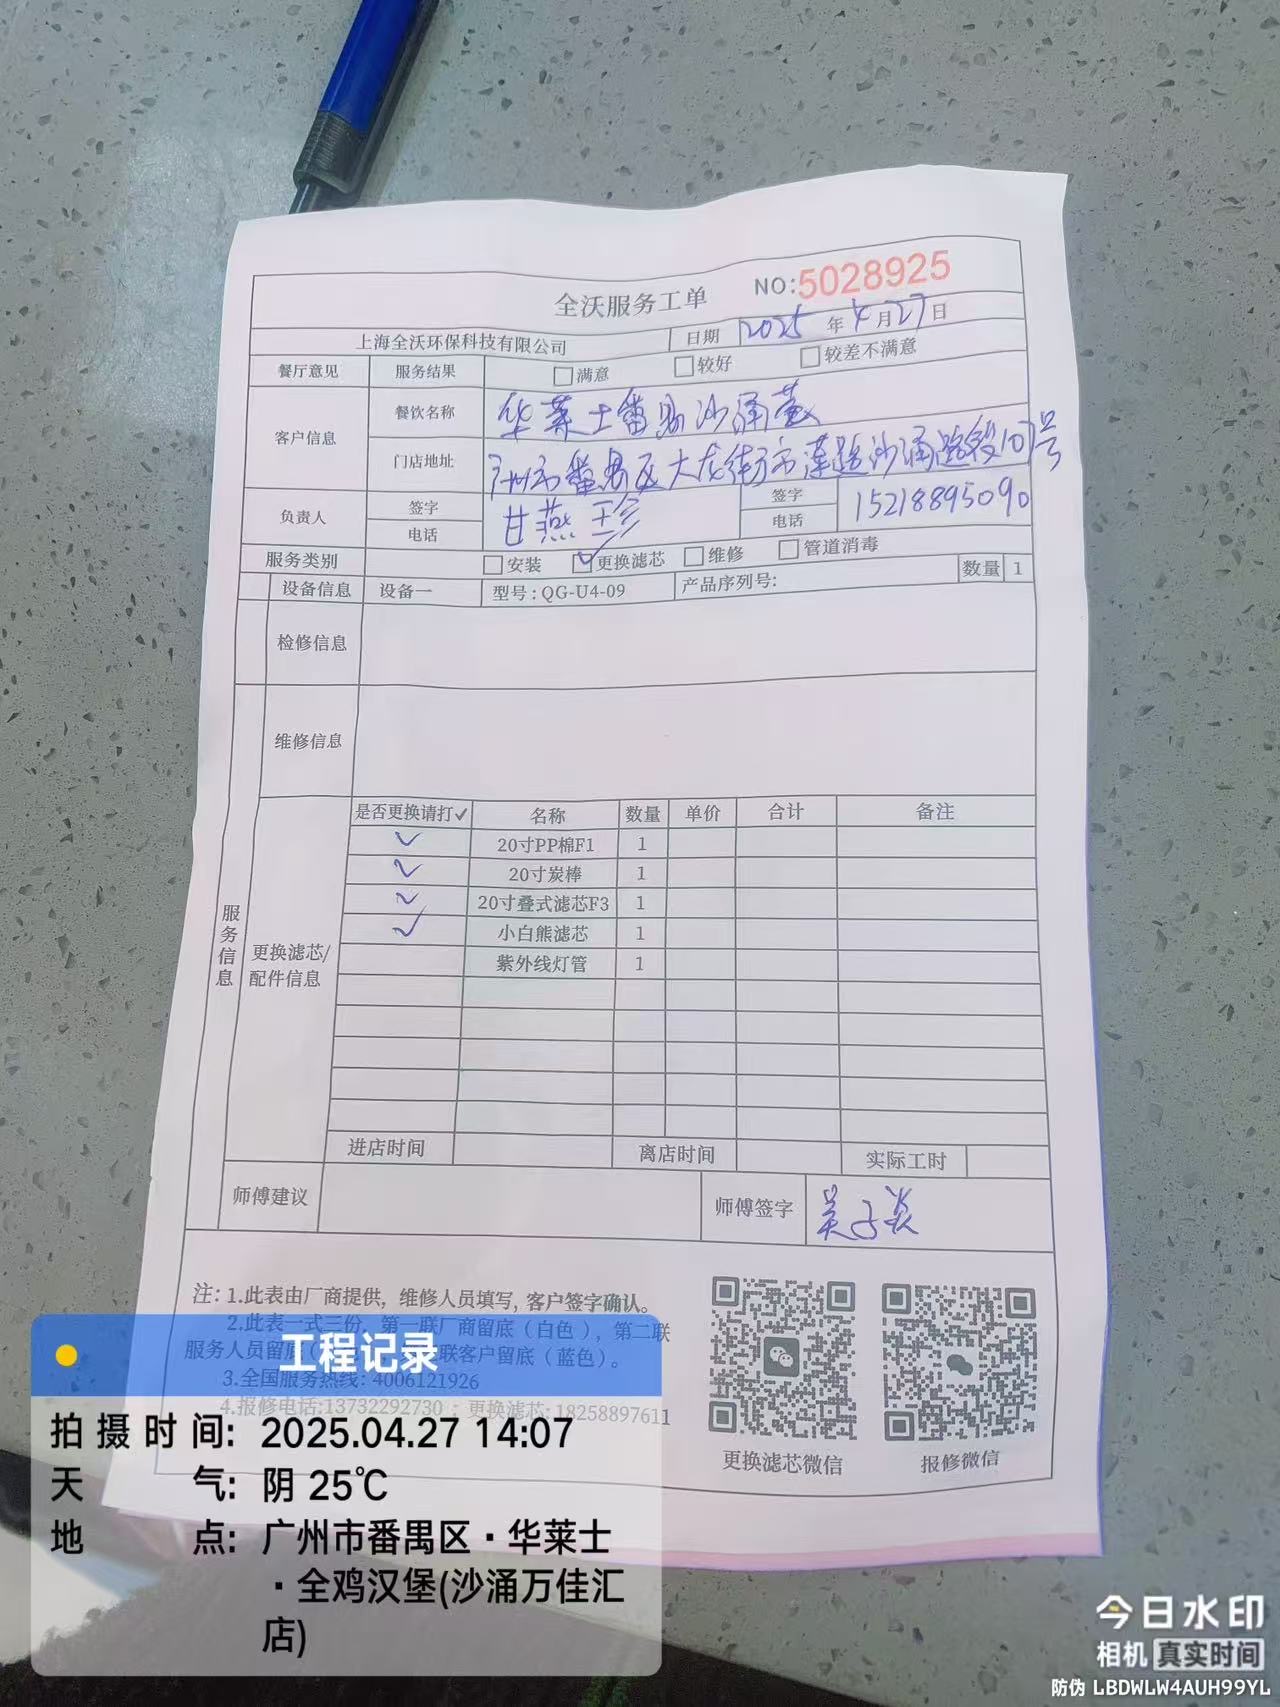 全沃服务工单
NO:5028925
上海全沃环保科技有限公司 日期 2025 年 4 月 27 日
餐厅意见 服务结果 满意 较好 较差不满意
客户信息 餐饮名称 华莱士番禺沙涌
门店地址 广州市番禺区大龙街市莲路沙涌路段107号
负责人 签字 电话 甘燕珍 签字 电话 15218895090
服务类别 安装 更换滤芯 维修 管道消毒
设备信息 设备一 型号:QG-U4-09 产品序列号: 数量 1
检修信息
维修信息
服务信息
更换滤芯/配件信息
是否更换请打✓ 名称 数量 单价 合计 备注
✓ 20寸PP棉F1 1
✓ 20寸炭棒 1
✓ 20寸叠式滤芯F3 1
✓ 小白熊滤芯 1
紫外线灯管 1
进店时间 离店时间 实际工时
师傅建议 师傅签字 吴子炎
注: 1.此表由厂商提供, 维修人员填写, 客户签字确认。
2.此表一式三份, 第一联厂商留底(白色), 第二联
服务人员留底( 联客户留底(蓝色)。
3.全国服务热线: 4006121926
4.报修电话:13732292730 ; 更换滤芯: 18258897611
更换滤芯微信 报修微信
工程记录
拍摄时间: 2025.04.27 14:07
天气: 阴 25℃
地点: 广州市番禺区·华莱士
·全鸡汉堡(沙涌万佳汇
店)
今日水印
相机 真实时间
防伪 LBDWLW4AUH99YL